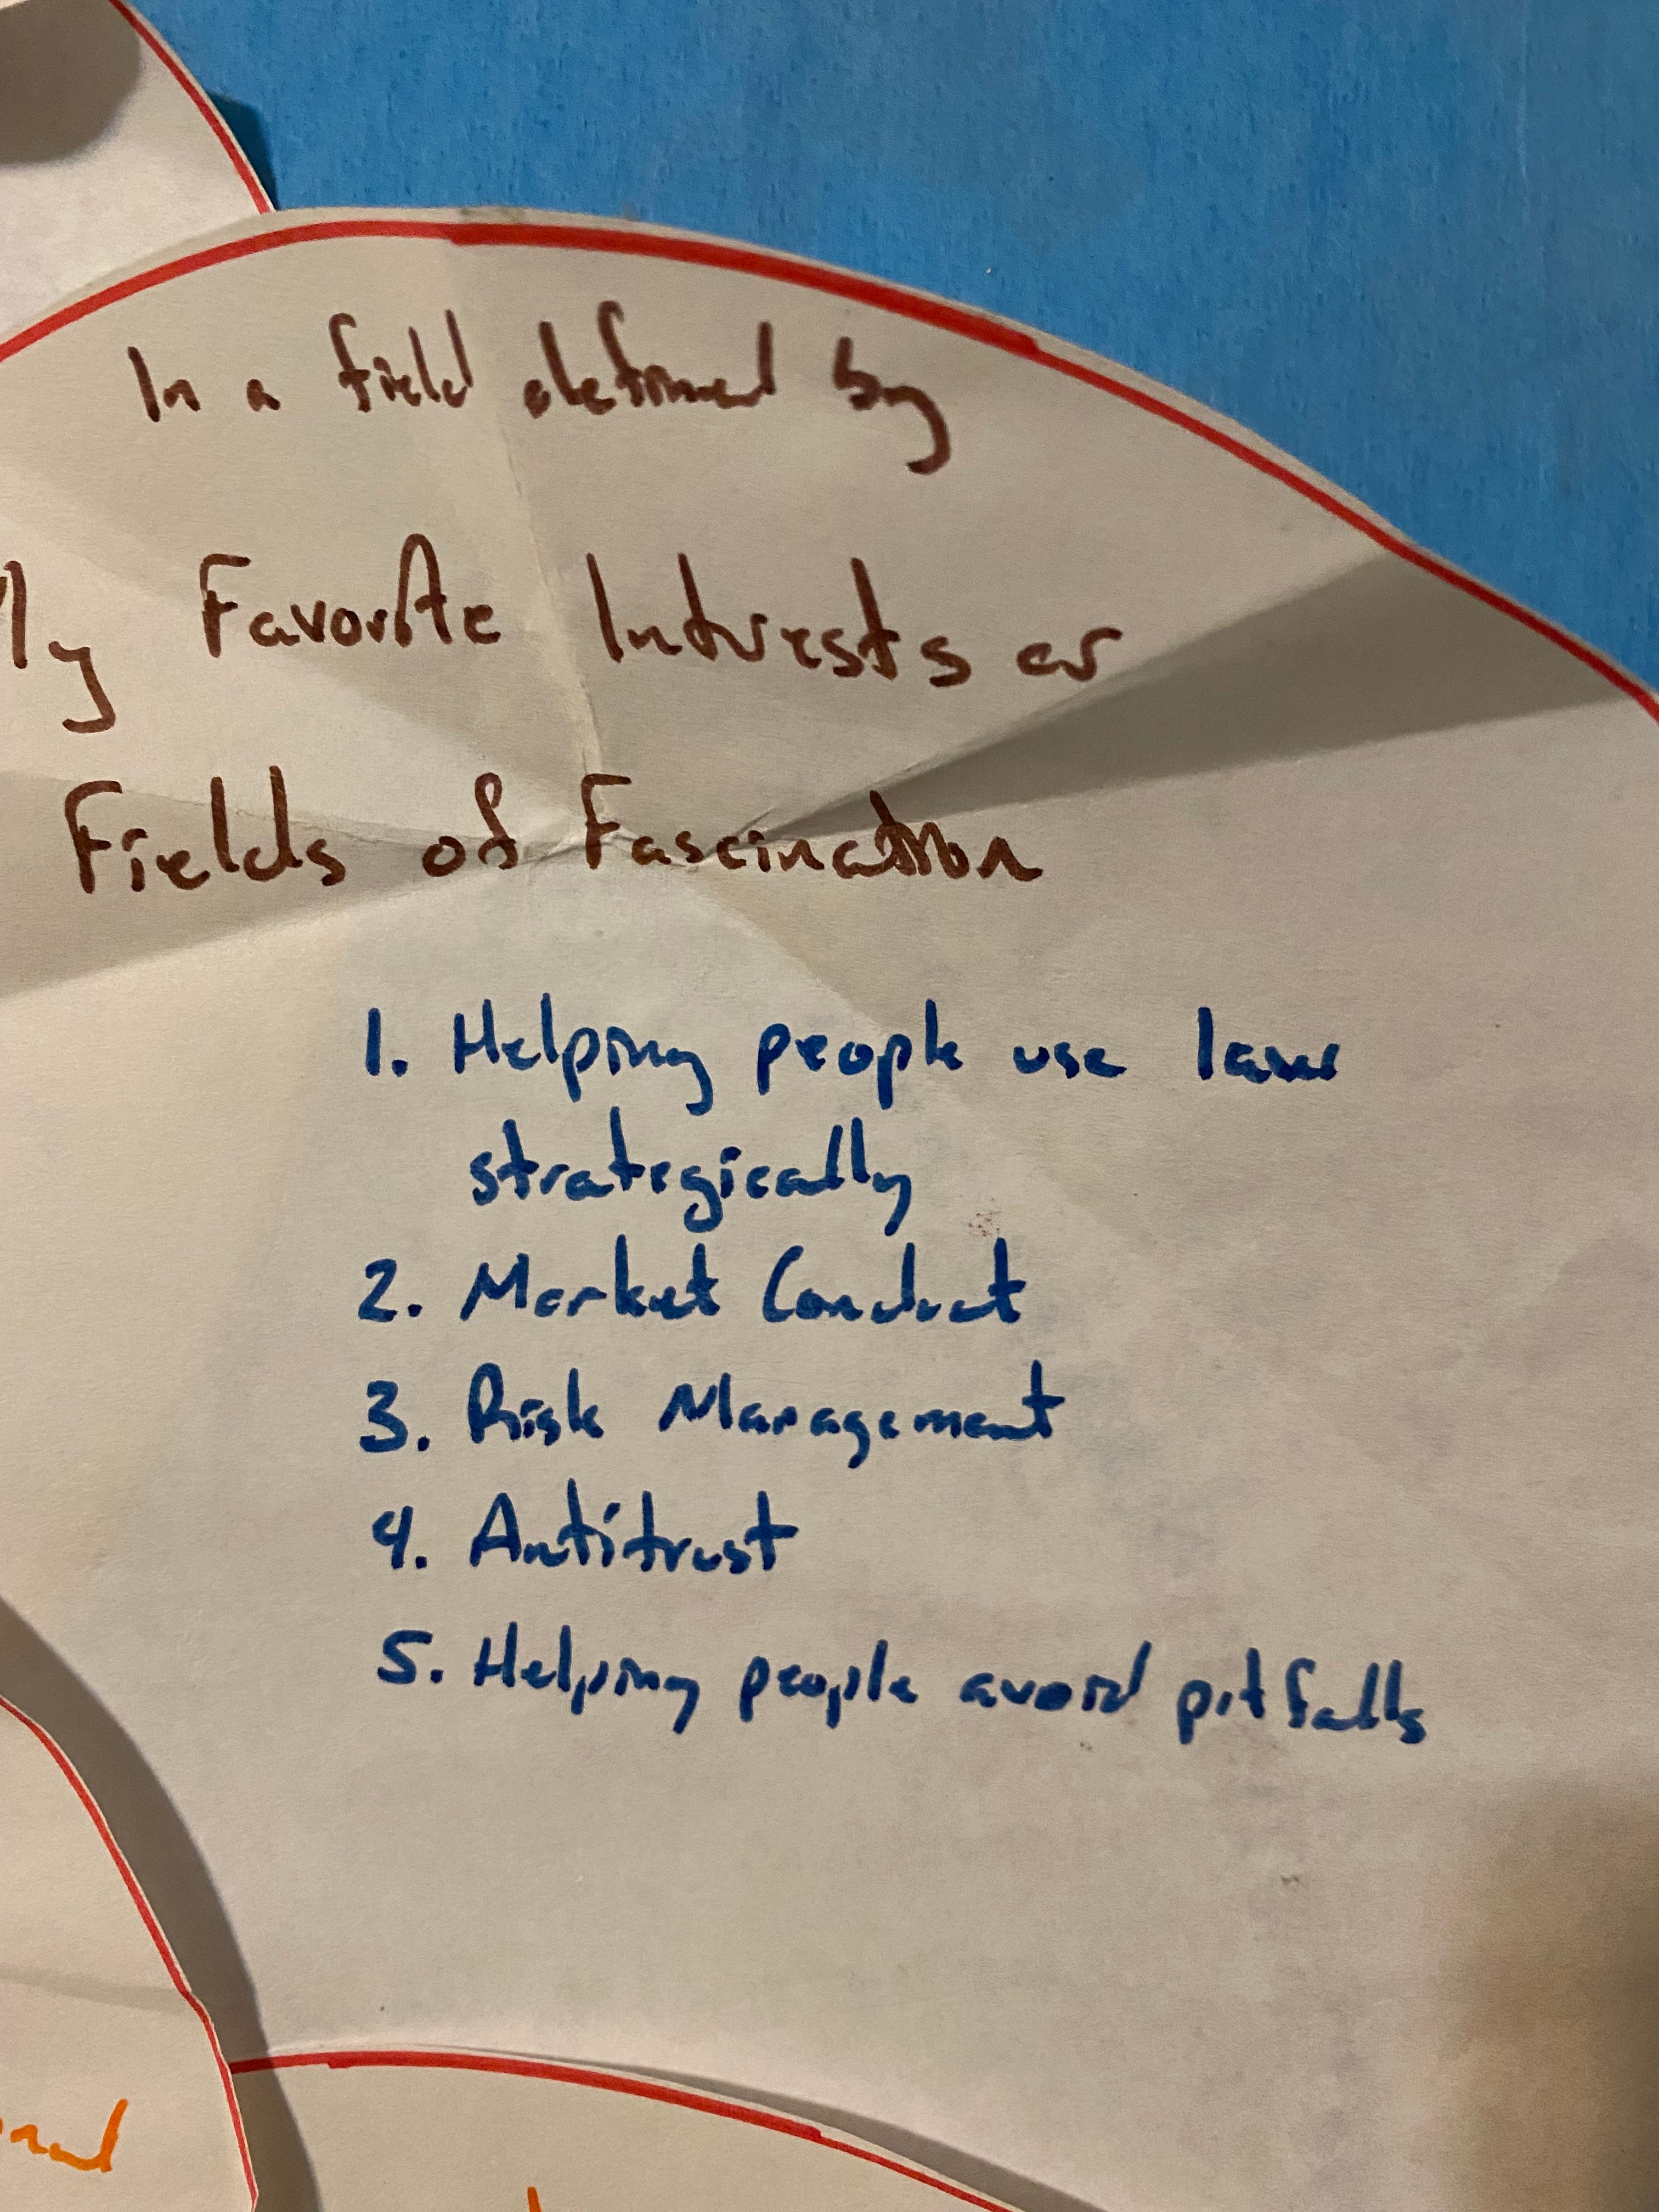 In a field defined by
My Favorite Interests or
Fields of Fascination
1. Helping people use laws
strategically
2. Market Conduct
3. Risk Management
4. Antitrust
5. Helping people avoid pitfalls